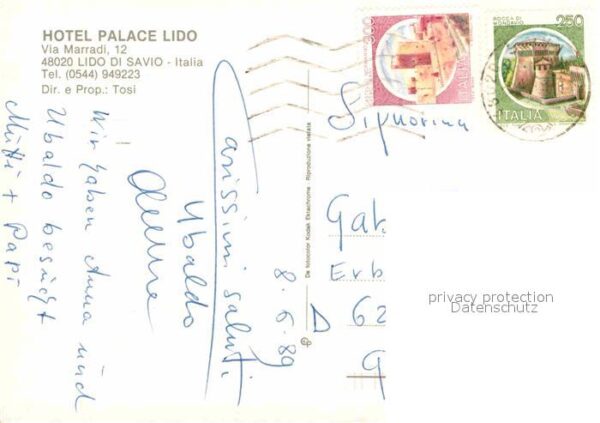 HOTEL PALACE LIDO
Via Marradi, 12
48020 LIDO DI SAVIO - Italia
Tel. (0544) 949223
Dir. e Prop.: Tosi
300
ROCCA DI MONDAVIO
250
ITALIA
Signorina
Gab
Erb
D 62
G
privacy protection
Datenschutz
Carissimi saluti
Ubaldo
8.6.89
Wir haben Anna und
Ubaldo besucht
Mutti + Papi
De Notocolor Kodak Ektachrome Riproduzione vietata